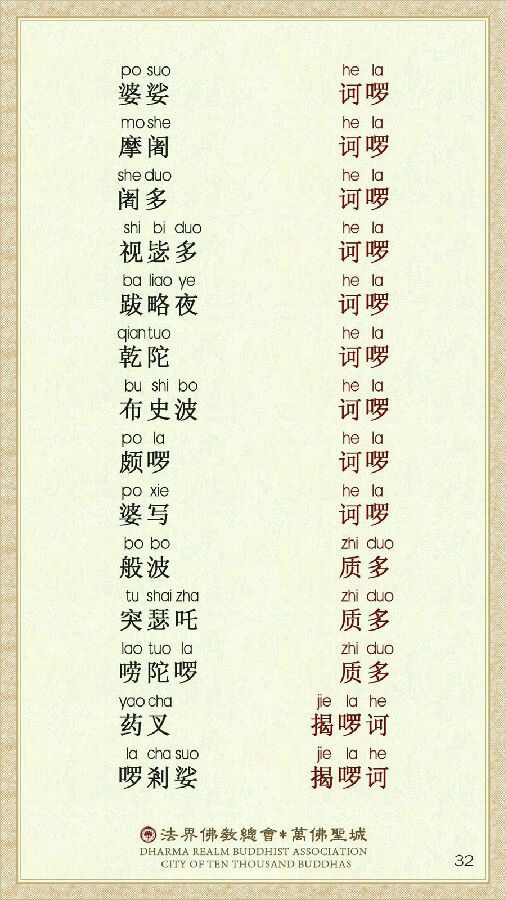 po suo he la
婆娑 诃啰
mo she he la
摩阇 诃啰
she duo he la
阇多 诃啰
shi bi duo he la
视毖多 诃啰
ba liao ye he la
跋略夜 诃啰
qian tuo he la
乾陀 诃啰
bu shi bo he la
布史波 诃啰
po la he la
颇啰 诃啰
po xie he la
婆写 诃啰
bo bo zhi duo
般波 质多
tu shai zha zhi duo
突瑟吒 质多
lao tuo la zhi duo
唠陀啰 质多
yao cha jie la he
药叉 揭啰诃
la cha suo jie la he
啰剎娑 揭啰诃
法界佛教總會*萬佛聖城
DHARMA REALM BUDDHIST ASSOCIATION
CITY OF TEN THOUSAND BUDDHAS
32